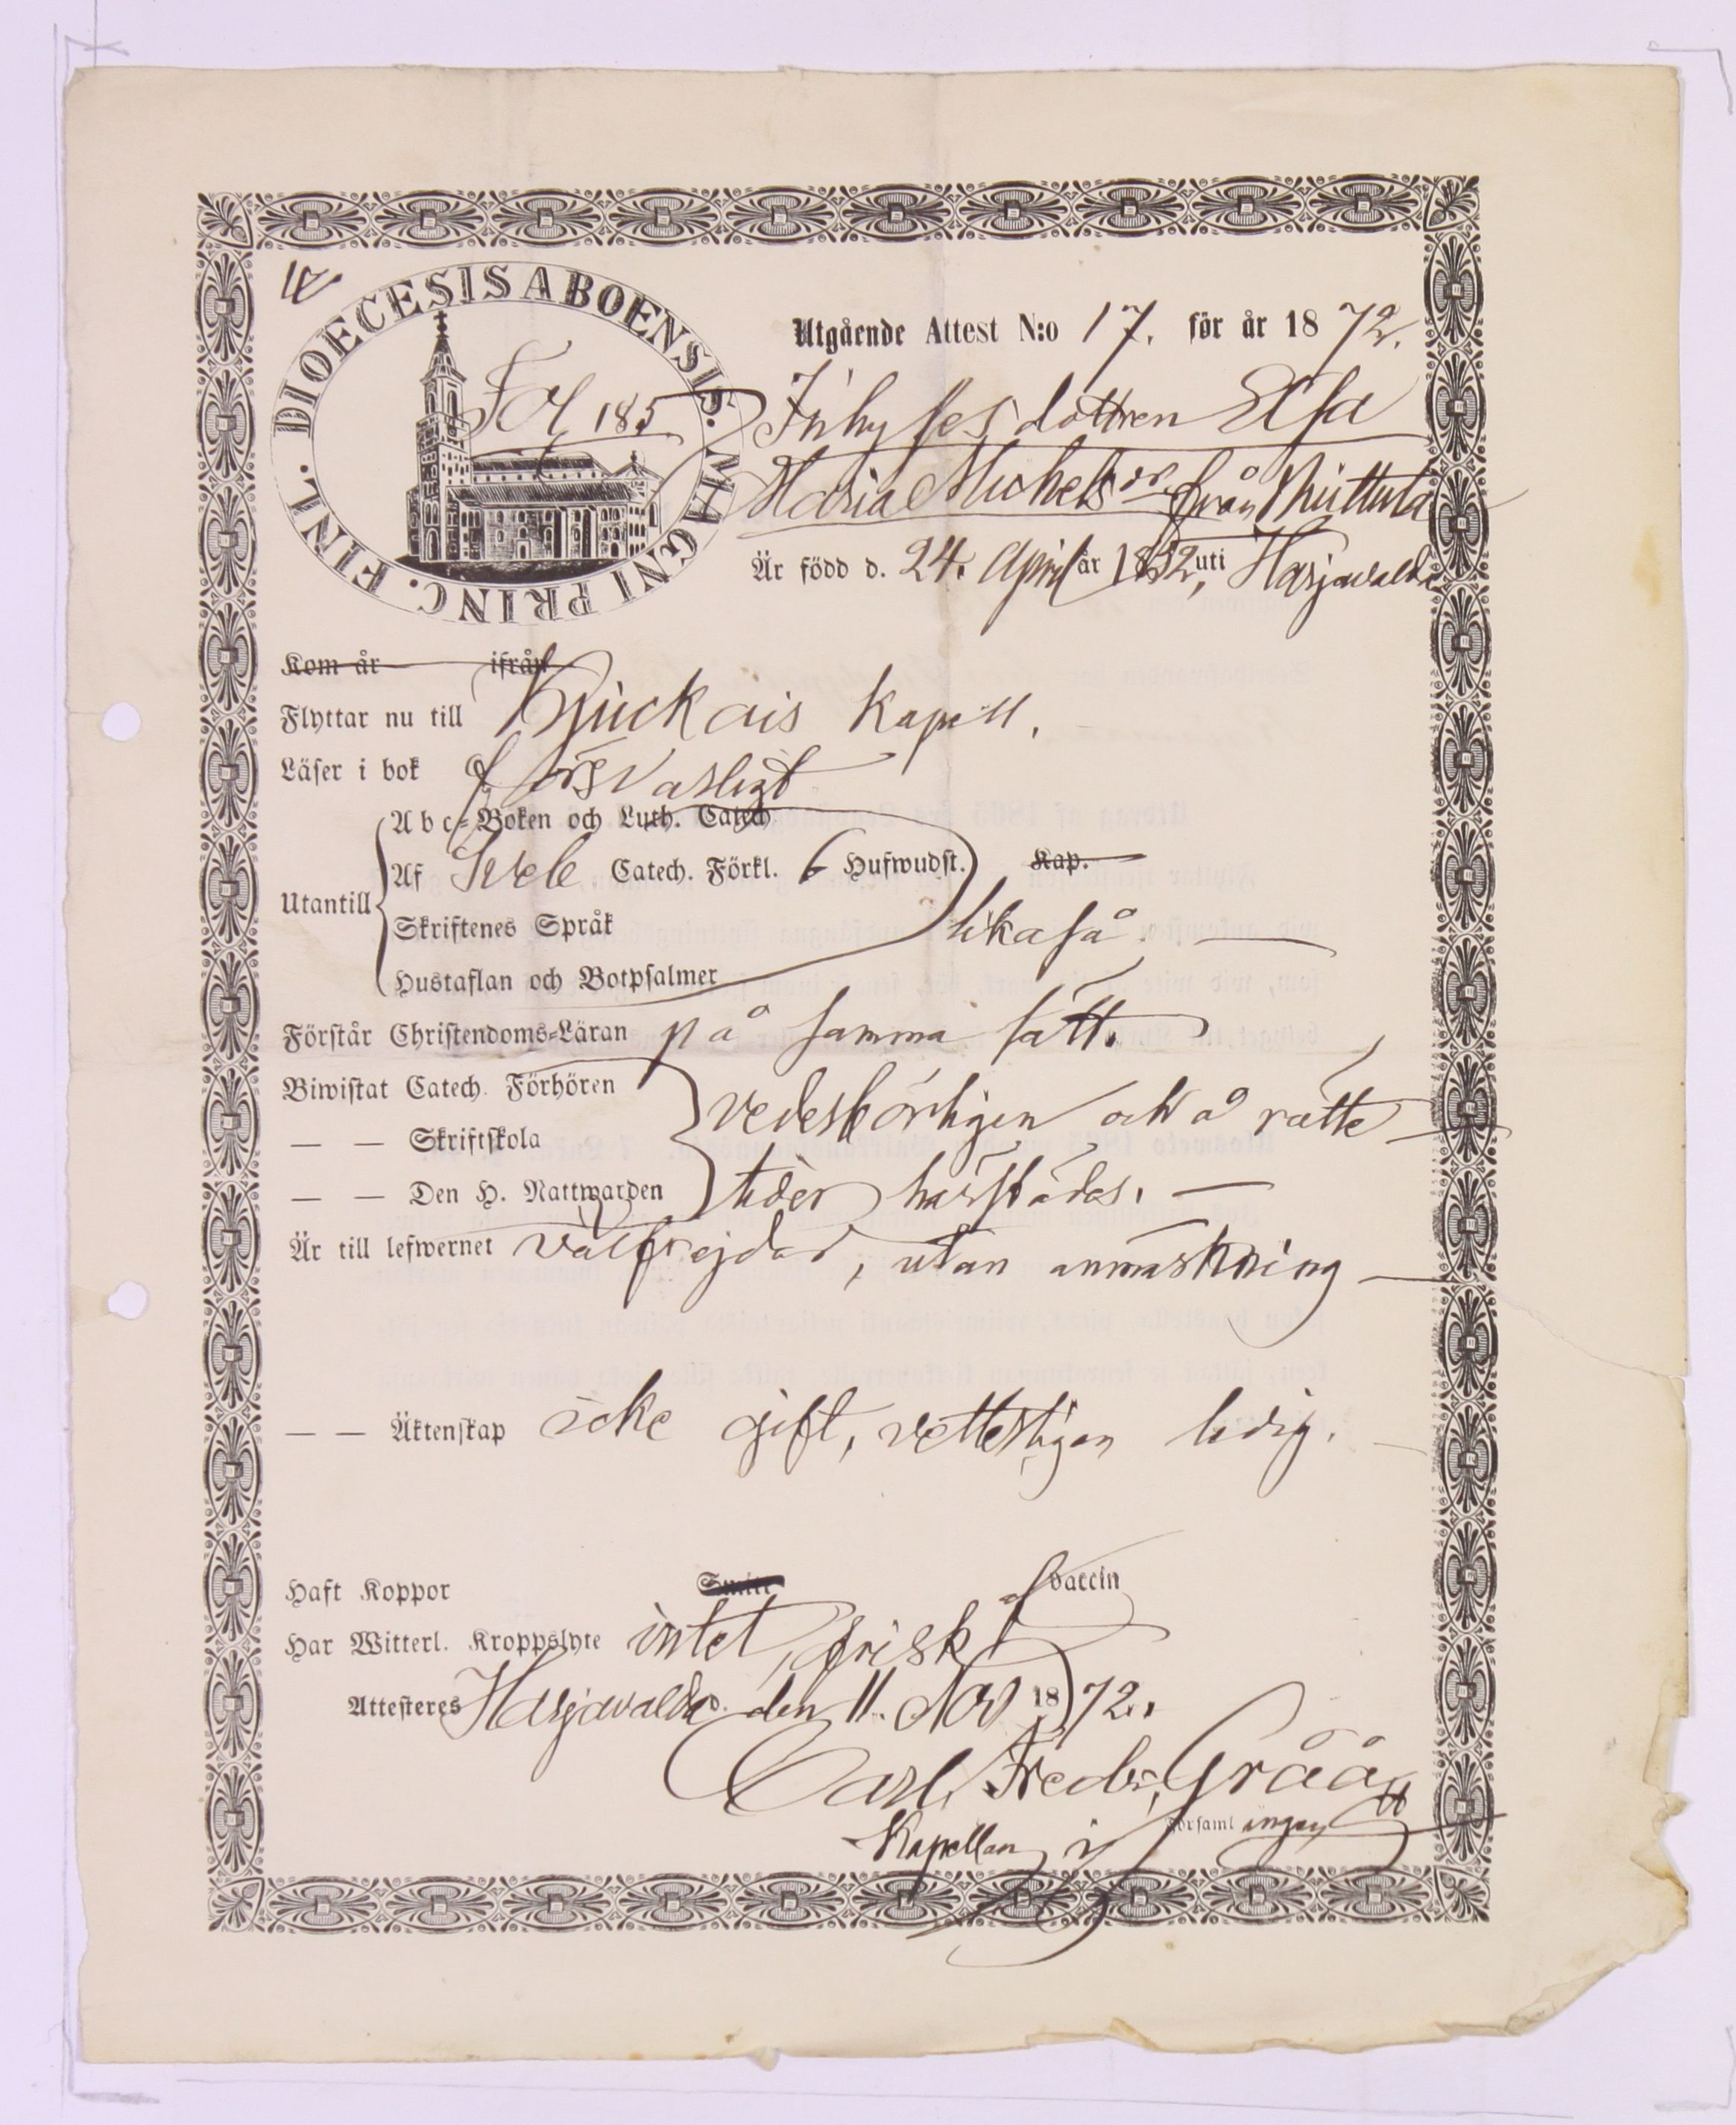 DIOECESIS ABOENSIS. MAGNI PRINC. FINL.
Fol 185
Utgående Attest N:o 17. för år 1872.
Inhyses dottren Efa
Maria Michelsdr. från
Är född d. 24. April år 1852, uti Harjavalda
Kom år ifrån
Flyttar nu till Kjuckais Kapell.
Läser i bok försvarligt
Abc-Boken och Luth. Catech
Utantill Af Svebe. Catech. Förkl. 6 Hufwudst. Kap.
Skriftenes Språk likaså.
Hustaflan och Botpsalmer
Förstår Christendoms-Läran på samma sätt.
Biwistat Catech. Förhören vederbörligen och å rätte
— — Skriftskola
— — Den H. Nattwarden tider härstädes. —
Är till lefwernet välfrejdad, utan anmärkning —
— — Äktenskap icke gift, vetterligen ledig.
Haft Koppor Smitt Vaccin
Har Witterl. Kroppslyte intet, frisk
Attesteras Harjavalda den 11. Nov 1872.
Carl Fredr. Gråå
Kapellan i församlingen